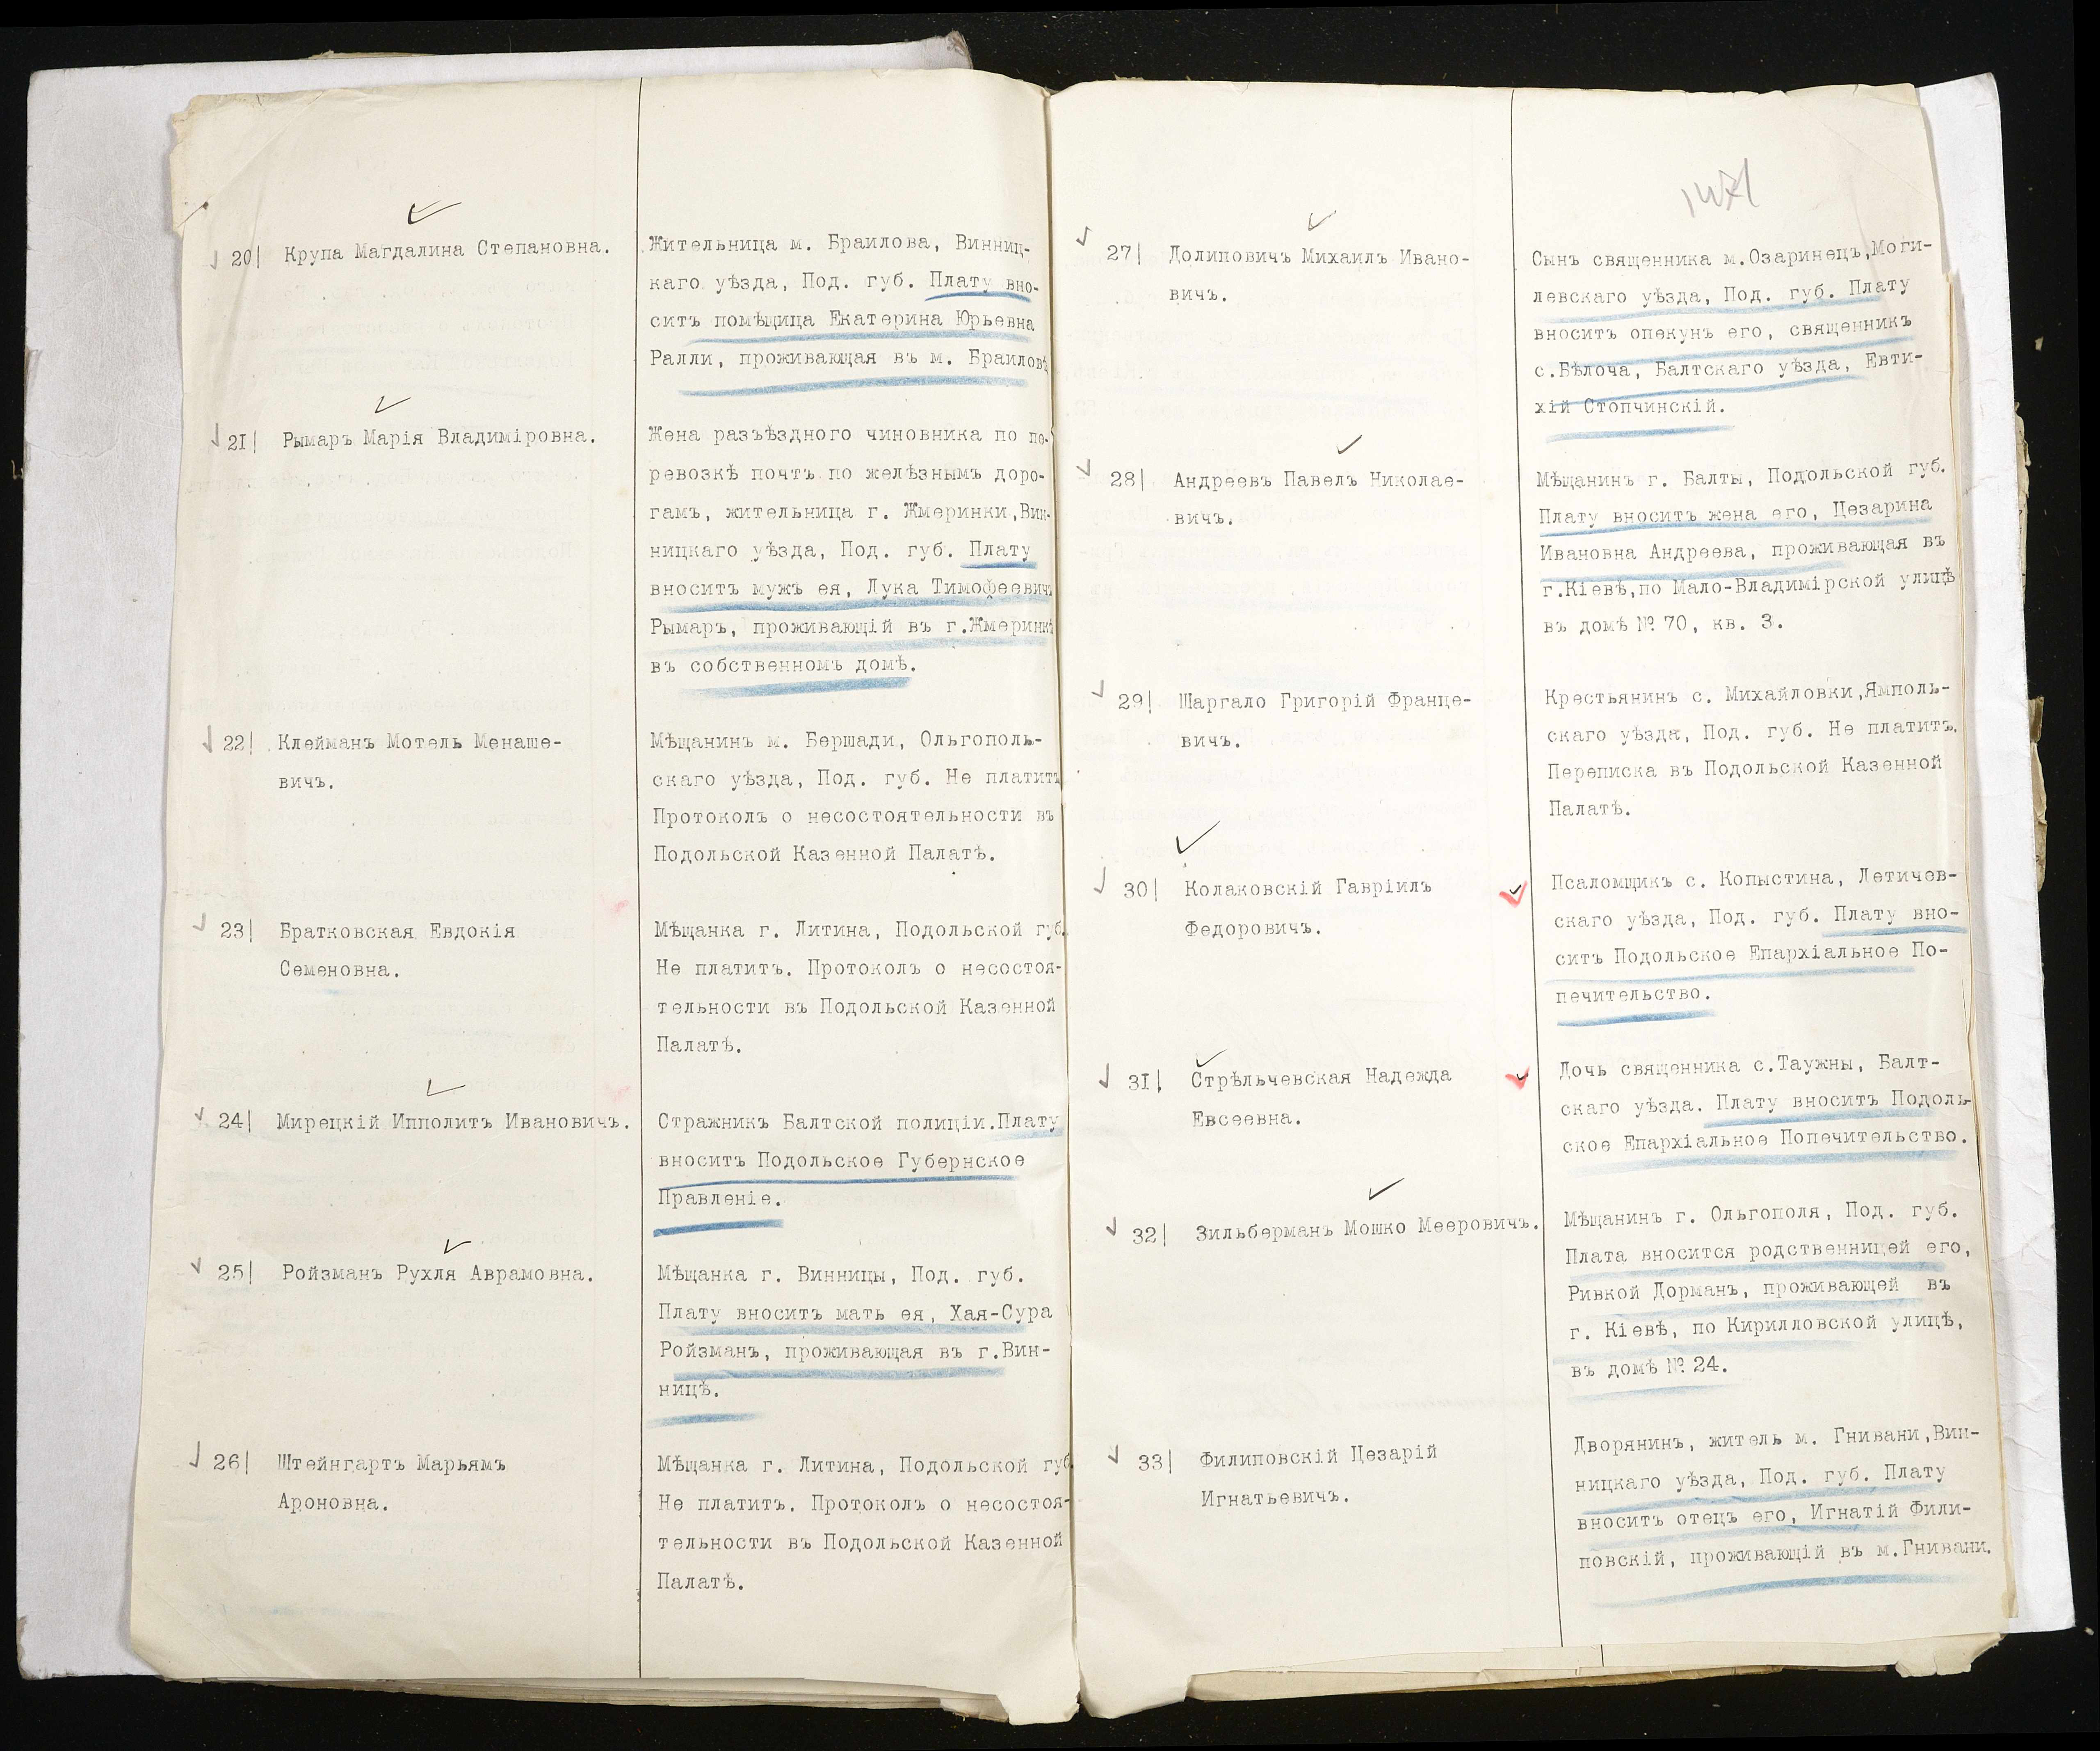 20| Крупа Магдалина Степановна.
Жительница м. Браилова, Винниц-
каго уѣзда, Под. губ. Плату вно-
ситъ помѣщица Екатерина Юрьевна
Ралли, проживающая въ м. Браиловѣ
21| Рымаръ Марія Владиміровна.
Жена разъѣздного чиновника по пе-
ревозкѣ почтъ по желѣзнымъ доро-
гамъ, жительница г. Жмеринки,Вин-
ницкаго уѣзда, Под. губ. Плату
вноситъ мужъ ея, Лука Тимофеевичъ
Рымаръ, проживающій въ г.Жмеринкѣ
въ собственномъ домѣ.
22| Клейманъ Мотель Менаше-
вичъ.
Мѣщанинъ м. Бершади, Ольгополь-
скаго уѣзда, Под. губ. Не платитъ
Протоколъ о несостоятельности въ
Подольской Казенной Палатѣ.
23| Братковская Евдокія
Семеновна.
Мѣщанка г. Литина, Подольской губ.
Не платитъ. Протоколъ о несостоя-
тельности въ Подольской Казенной
Палатѣ.
24| Мирецкій Ипполитъ Ивановичъ.
Стражникъ Балтской полиціи.Плату
вноситъ Подольское Губернское
Правленіе.
25| Ройзманъ Рухля Аврамовна.
Мѣщанка г. Винницы, Под. губ.
Плату вноситъ мать ея, Хая-Сура
Ройзманъ, проживающая въ г.Вин-
ницѣ.
26| Штейнгартъ Марьямъ
Ароновна.
Мѣщанка г. Литина, Подольской губ
Не платитъ. Протоколъ о несостоя-
тельности въ Подольской Казенной
Палатѣ.
27| Долиповичъ Михаилъ Ивано-
вичъ.
Сынъ священника м.Озаринецъ,Моги-
левскаго уѣзда, Под. губ. Плату
вноситъ опекунъ его, священникъ
с.Бѣлоча, Балтскаго уѣзда, Евти-
хій Стопчинскій.
28| Андреевъ Павелъ Николае-
вичъ.
Мѣщанинъ г. Балты, Подольской губ.
Плату вноситъ жена его, Цезарина
Ивановна Андреева, проживающая въ
г.Кіевѣ,по Мало-Владимірской улицѣ
въ домѣ № 70, кв. 3.
29| Шаргало Григорій Франце-
вичъ.
Крестьянинъ с. Михайловки,Ямполь-
скаго уѣзда, Под. губ. Не платитъ.
Переписка въ Подольской Казенной
Палатѣ.
30| Колаковскій Гавріилъ
Федоровичъ.
Псаломщикъ с. Копыстина, Летичев-
скаго уѣзда, Под. губ. Плату вно-
ситъ Подольское Епархіальное По-
печительство.
31| Стрѣльчевская Надежда
Евсеевна.
Дочь священника с.Таужны, Балт-
скаго уѣзда. Плату вноситъ Подоль-
ское Епархіальное Попечительство.
32| Зильберманъ Мошко Мееровичъ.
Мѣщанинъ г. Ольгополя, Под. губ.
Плата вносится родственницей его,
Ривкой Дорманъ, проживающей въ
г. Кіевѣ, по Кирилловской улицѣ,
въ домѣ № 24.
33| Филиповскій Цезарій
Игнатьевичъ.
Дворянинъ, житель м. Гнивани,Вин-
ницкаго уѣзда, Под. губ. Плату
вноситъ отецъ его, Игнатій Фили-
повскій, проживающій въ м.Гнивани.